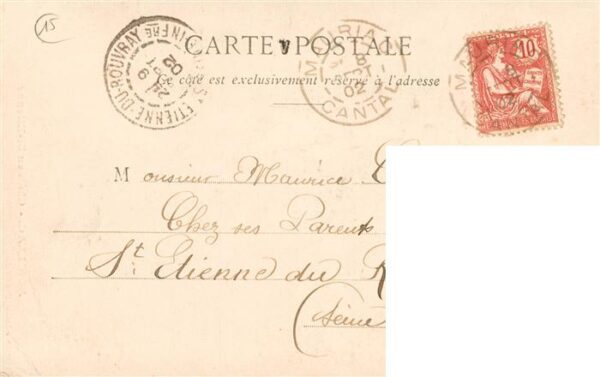 15
CARTE POSTALE
Ce côté est exclusivement réservé à l'adresse
ST ETIENNE-DU-ROUVRAY
MAURIAC
CANTAL
10
Monsieur Maurice
Chez ses Parents
St Etienne du R
(Seine